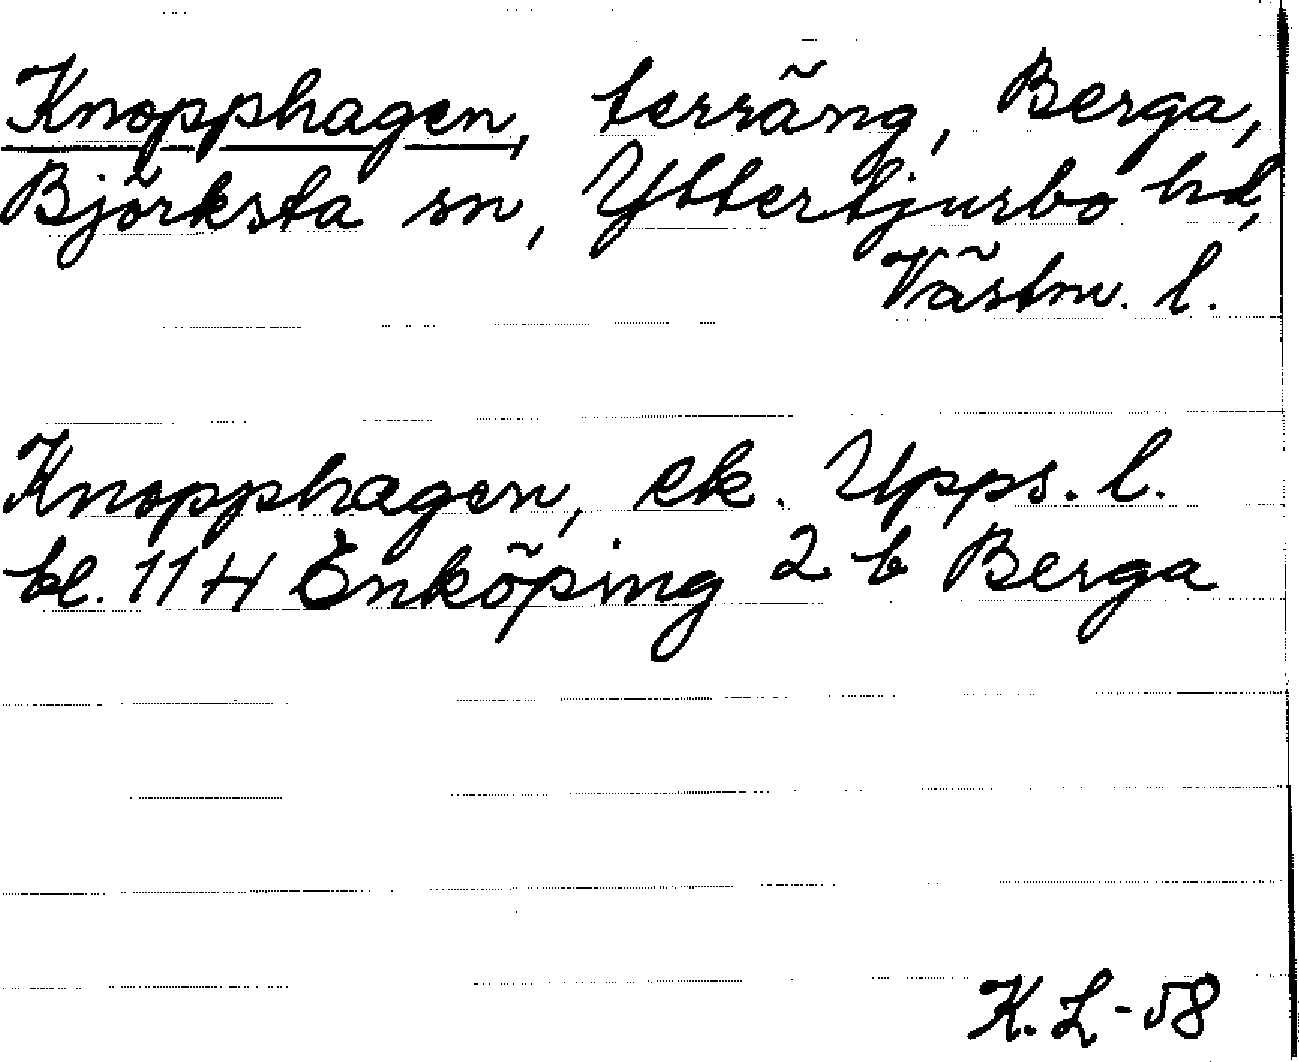 Knopphagen, terräng, Berga,
Björksta sn, Yttertjurbo hd,
Västm. l.
Knopphagen, ek. Upps. l.
bl. 11 H Enköping 2 b Berga
K. L-58